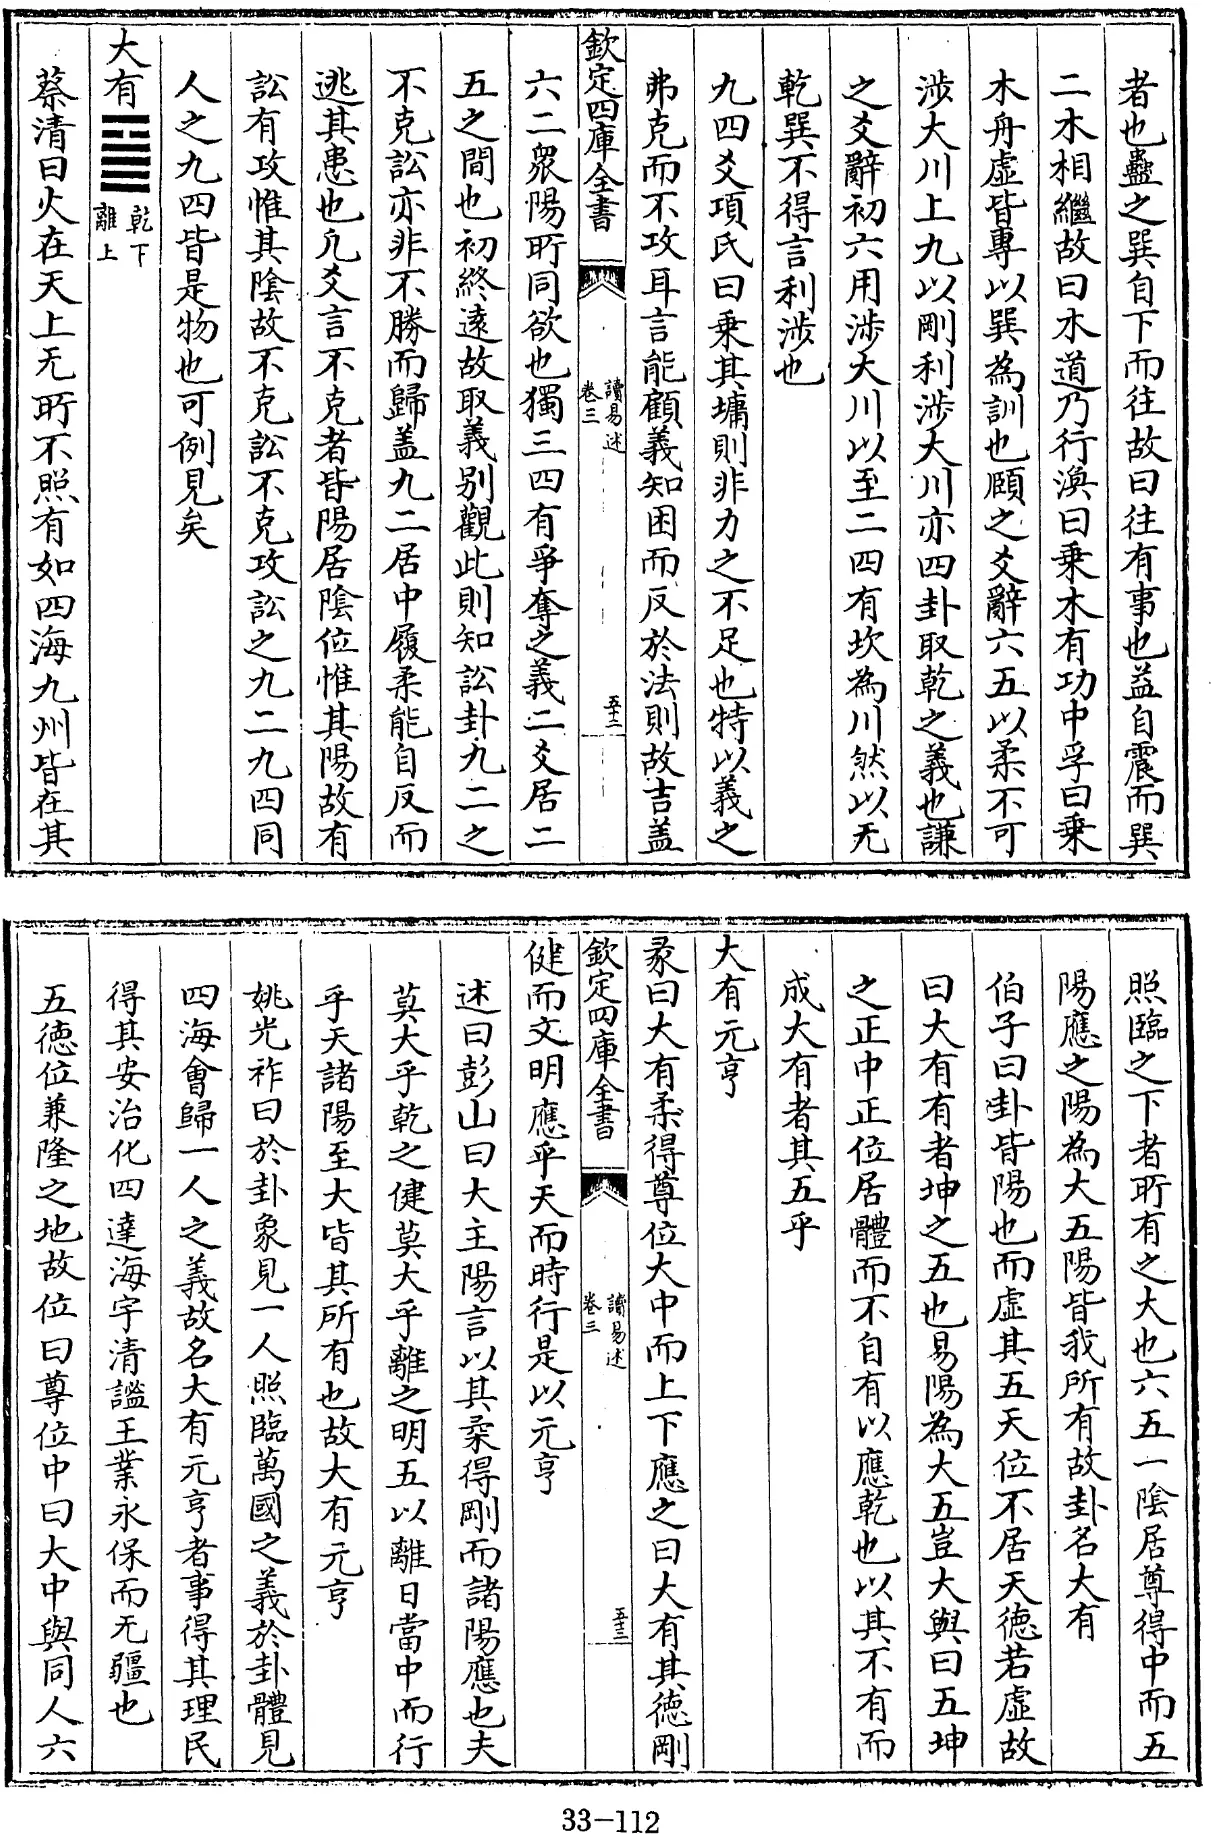 者也蠱之巽自下而往故曰往有事也益自震而巽
二木相繼故曰木道乃行渙曰乗木有功中孚曰乗
木舟虛皆專以巽為訓也頤之爻辭六五以柔不可
涉大川上九以剛利涉大川亦四卦取乾之義也謙
之爻辭初六用涉大川以至二四有坎為川然以无
乾巽不得言利涉也
九四爻項氏曰乗其墉則非力之不足也特以義之
弗克而不攻耳言能顧義知困而反於法則故吉盖
欽定四庫全書
讀易述
卷三
五十二
六二衆陽所同欲也獨三四有爭奪之義二爻居二
五之間也初終遠故取義别觀此則知訟卦九二之
不克訟亦非不勝而歸盖九二居中履柔能自反而
逃其患也凡爻言不克者皆陽居陰位惟其陽故有
訟有攻惟其陰故不克訟不克攻訟之九二九四同
人之九四皆是物也可例見矣
大有䷍乾下
離上
蔡清曰火在天上无所不照有如四海九州皆在其
照臨之下者所有之大也六五一陰居尊得中而五
陽應之陽為大五陽皆我所有故卦名大有
伯子曰卦皆陽也而虛其五天位不居天德若虛故
曰大有有者坤之五也易陽為大五豈大與曰五坤
之正中正位居體而不自有以應乾也以其不有而
成大有者其五乎
大有元亨
彖曰大有柔得尊位大中而上下應之曰大有其德剛
欽定四庫全書
讀易述
卷三
五十三
健而文明應乎天而時行是以元亨
述曰彭山曰大主陽言以其柔得剛而諸陽應也夫
莫大乎乾之健莫大乎離之明五以離日當中而行
乎天諸陽至大皆其所有也故大有元亨
姚光祚曰於卦象見一人照臨萬國之義於卦體見
四海會歸一人之義故名大有元亨者事得其理民
得其安治化四達海宇清謐王業永保而无疆也
五德位兼隆之地故位曰尊位中曰大中與同人六
33-112